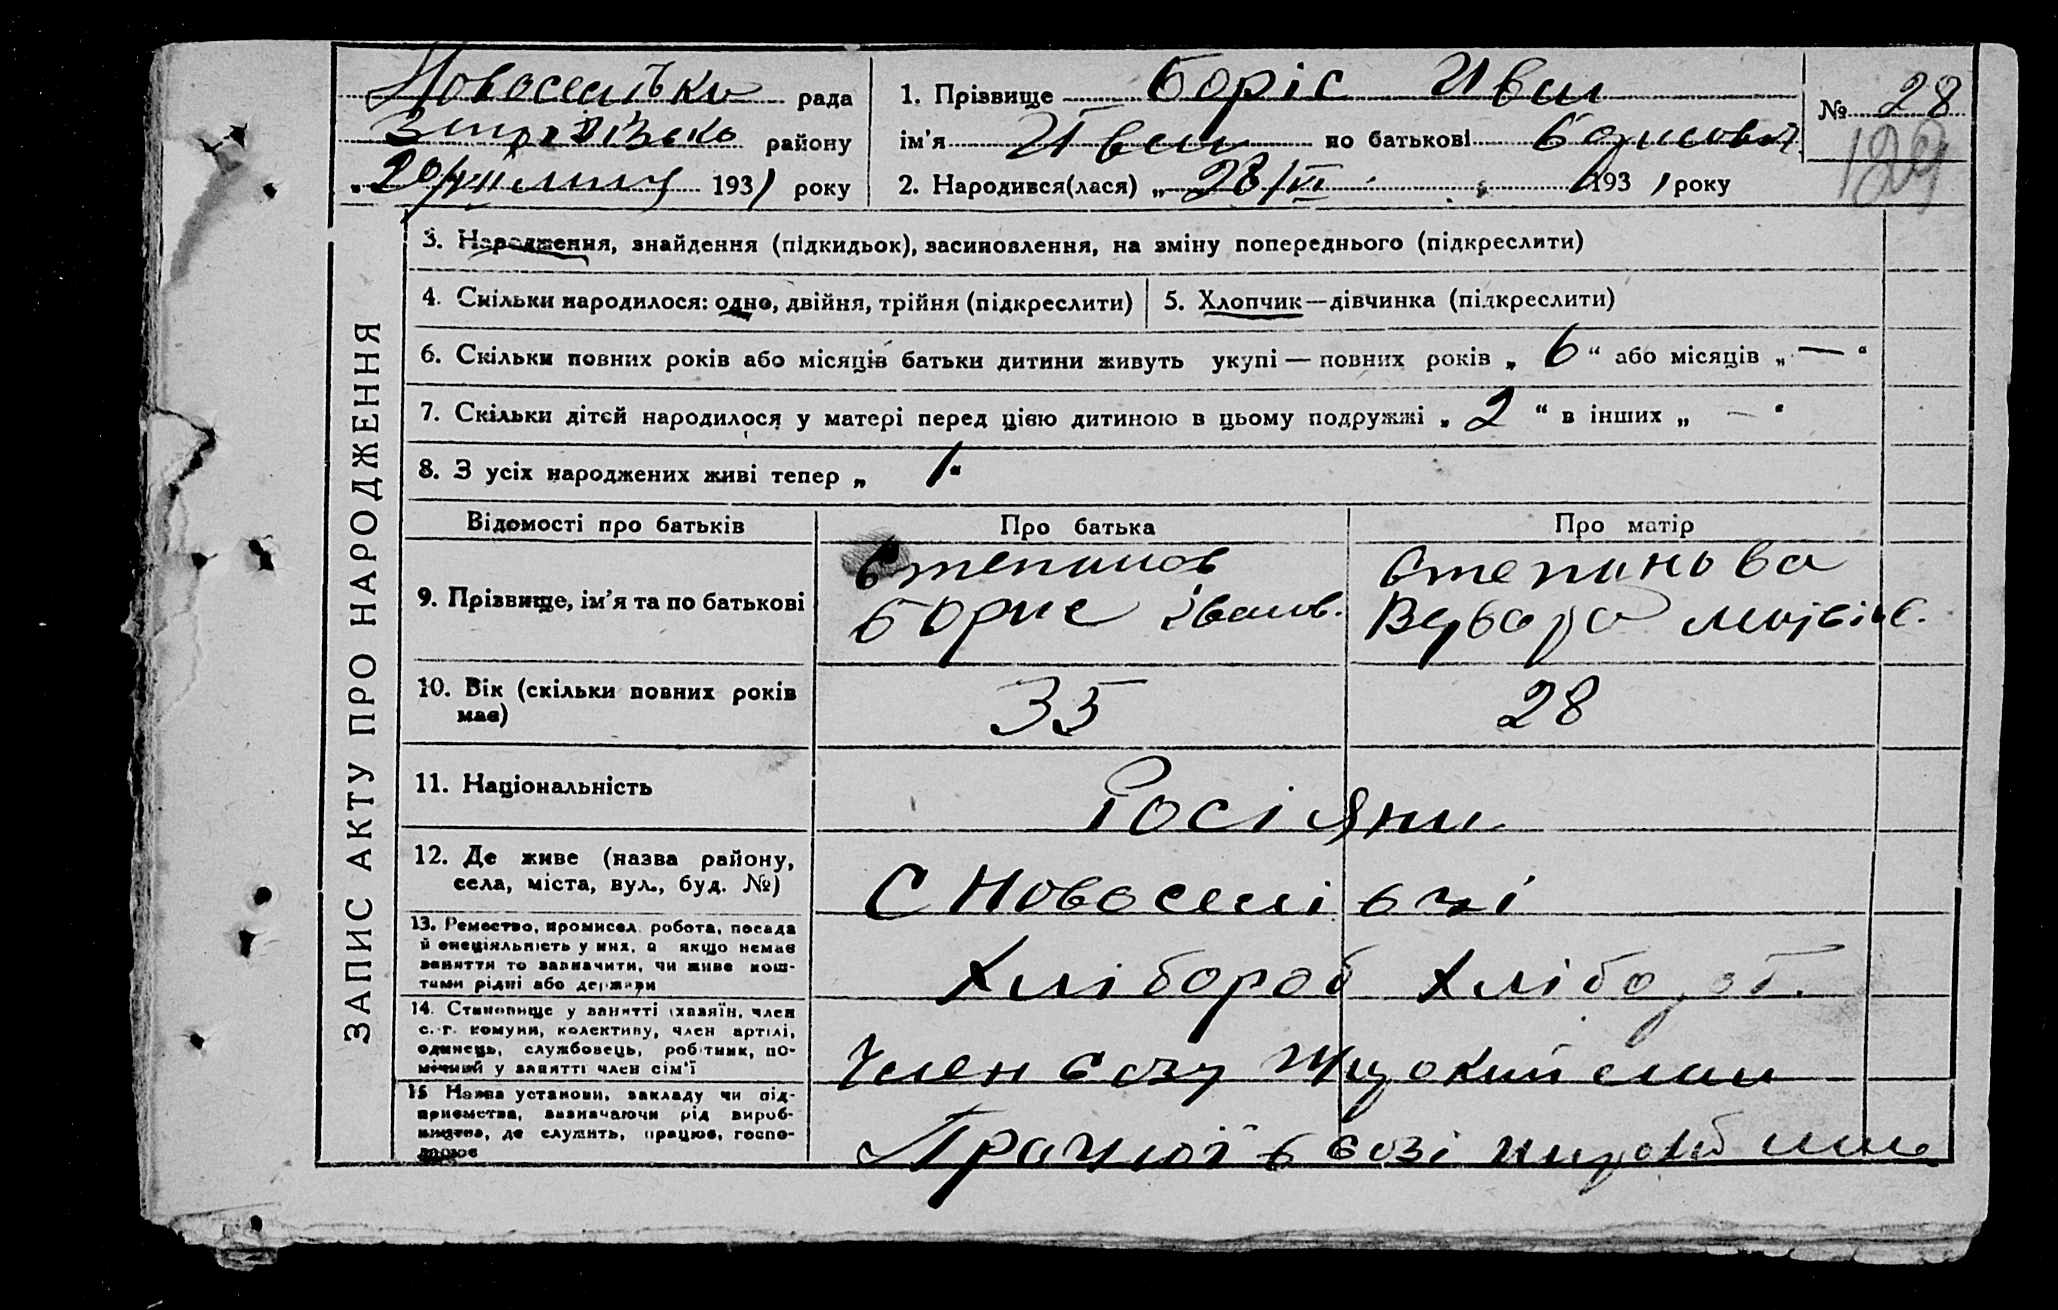 Новосельска рада
району
20/VII 1931 року
1. Прізвище Боріс Иван
ім'я Иван по батькові Борисович
2. Народився(лася) „ 28/VI 1931 року
№ 28
129
ЗАПИС АКТУ ПРО НАРОДЖЕННЯ
3. Народження, знайдення (підкидьок), засиновлення, на зміну попереднього (підкреслити)
4. Скільки народилося: одно, двійня, трійня (підкреслити)
5. Хлопчик—дівчинка (підкреслити)
6. Скільки повних років або місяців батьки дитини живуть укупі — повних років „ 6 “ або місяців „ — “
7. Скільки дітей народилося у матері перед цією дитиною в цьому подружжі „ 2 “ в інших „ — “
8. З усіх народжених живі тепер „ 1 “
Відомості про батьків
Про батька
Про матір
9. Прізвище, ім'я та по батькові
Степанов
Борис Іванов.
Степанова
Варвара
10. Вік (скільки повних років
має)
35
28
11. Національність
Росіяни
12. Де живе (назва району,
села, міста, вул., буд. №)
С Новоселівці
13. Ремество, промисел, робота, посада
й спеціяльність у них, а якщо немає
заняття то зазначити, чи живе кош-
тами рідні або держави
Хлібороб Хлібороб.
14. Становище у занятті (хазяїн, член
с.-г. комуни, колективу, член артілі,
одинець, службовець, робітник, по-
мічний у занятті член сім'ї
Член созу
15. Назва установи, закладу чи під-
приємства, зазначаючи рід вироб-
ництва, де служить, працює, госпо-
дарює
Працює в созі